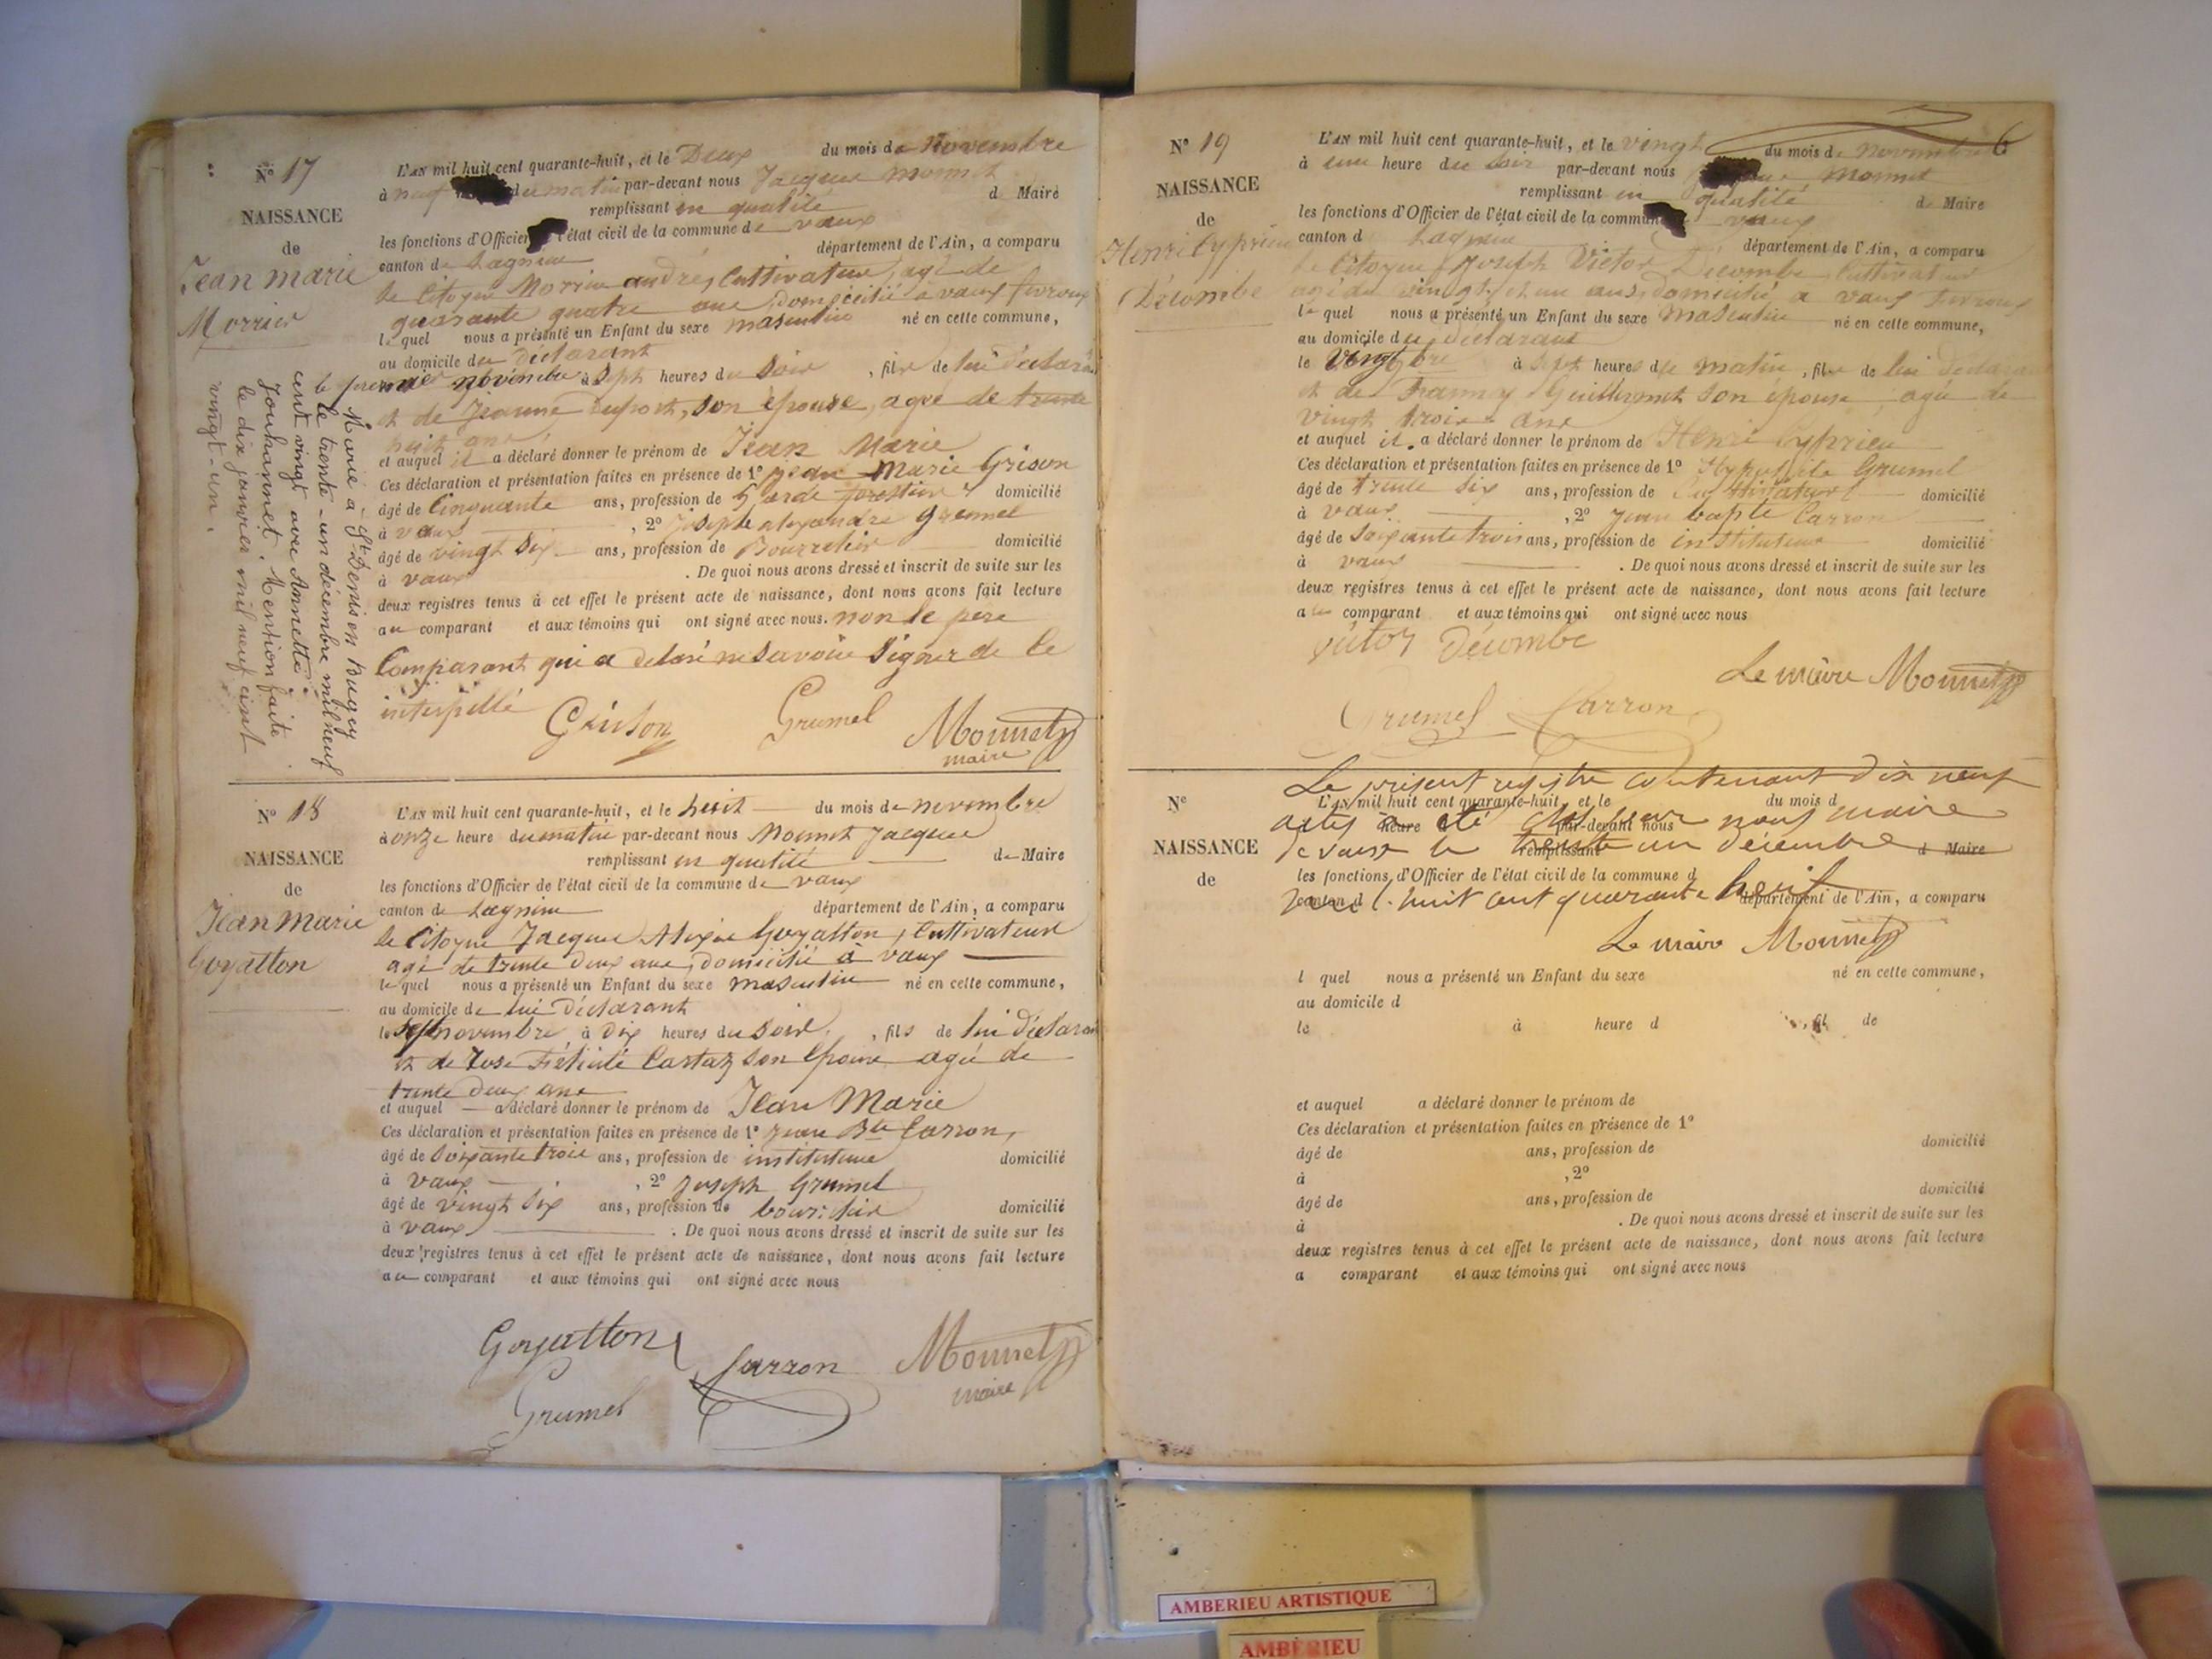 N° 17
NAISSANCE
de
Jean marie
Morrier
L'AN mil huit cent quarante-huit, et le Deux du mois de Novembre
à neuf du matin par-devant nous Jacques Monnet
remplissant en qualité de Maire
les fonctions d'Officier l'état civil de la commune de vaux
canton de Lagnieu département de l'Ain, a comparu
le Citoyen Morrier andré, Cultivateur, agé de
quarante quatre ans, domicilié à vaux fevroux
lequel nous a présenté un Enfant du sexe masculin né en cette commune,
au domicile du déclarant
le premier novembre à sept heures du soir, fils de lui déclarant
et de Jeanne Dupont, son épouse, agée de trente
huit ans
et auquel il a déclaré donner le prénom de Jean Marie
Ces déclaration et présentation faites en présence de 1° Jean Marie Grison
âgé de Cinquante ans, profession de Garde forestier domicilié
à vaux, 2° Joseph alexandre Grumel
âgé de vingt six ans, profession de Bourrelier domicilié
à vaux. De quoi nous avons dressé et inscrit de suite sur les
deux registres tenus à cet effet le présent acte de naissance, dont nous avons fait lecture
au comparant et aux témoins qui ont signé avec nous. non le pere
Comparant qui a déclaré ne savoir signer de ce
interpellé
Grison Grumel Monnet
maire
Marié à St Denis en Bugey
le trente-un décembre mil neuf
cent vingt avec Annette
Jouhannet. Mention faite
le dix janvier mil neuf cent
vingt-un.
N° 18
NAISSANCE
de
Jean Marie
Goyatton
L'AN mil huit cent quarante-huit, et le huit du mois de novembre
à onze heure du matin par-devant nous Monnet Jacques
remplissant en qualité de Maire
les fonctions d'Officier de l'état civil de la commune de vaux
canton de Lagnieu département de l'Ain, a comparu
le Citoyen Jacques Alexis Goyatton, Cultivateur
agé de trente deux ans, domicilié à vaux
lequel nous a présenté un Enfant du sexe masculin né en cette commune,
au domicile de lui déclarant
le sept novembre à dix heures du soir, fils de lui déclarant
et de Rose Félicité Castaz son épouse agée de
trente deux ans
et auquel a déclaré donner le prénom de Jean Marie
Ces déclaration et présentation faites en présence de 1° Jean Bte Carron,
âgé de soixante trois ans, profession de instituteur domicilié
à vaux, 2° Joseph Grumel
âgé de vingt six ans, profession de bourrelier domicilié
à vaux. De quoi nous avons dressé et inscrit de suite sur les
deux registres tenus à cet effet le présent acte de naissance, dont nous avons fait lecture
au comparant et aux témoins qui ont signé avec nous
Goyatton Carron Monnet
Grumel maire
6
N° 19
NAISSANCE
de
Henri Cyprien
Décombe
L'AN mil huit cent quarante-huit, et le vingt du mois de novembre
à une heure du soir par-devant nous Monnet
remplissant en qualité de Maire
les fonctions d'Officier de l'état civil de la commune vaux
canton d Lagnieu département de l'Ain, a comparu
le Citoyen Joseph Victor Décombe, Cultivateur
agé de vingt et un ans, domicilié à vaux fevroux
lequel nous a présenté un Enfant du sexe masculin né en cette commune,
au domicile du déclarant
le vingt bre à sept heures du matin, fils de lui déclarant
et de Franny Guillermet son épouse, agée de
vingt trois ans
et auquel il a déclaré donner le prénom de Henri Cyprien
Ces déclaration et présentation faites en présence de 1° Hypolite Grumel
âgé de trente six ans, profession de domicilié
à vaux, 2° Jean bapte Carron
âgé de soixante trois ans, profession de instituteur domicilié
à vaux. De quoi nous avons dressé et inscrit de suite sur les
deux registres tenus à cet effet le présent acte de naissance, dont nous avons fait lecture
a les comparant et aux témoins qui ont signé avec nous
victor Décombe
Le maire Monnet
Grumel Carron
Le présent registre contenant dix neuf
actes a été clos par nous maire
de vaux le trente un décembre
mil huit cent quarante huit
Le maire Monnet
N°
NAISSANCE
de
L'AN mil huit cent quarante-huit, et le du mois d
à heure d par-devant nous
remplissant d Maire
les fonctions d'Officier de l'état civil de la commune d
canton d département de l'Ain, a comparu
l quel nous a présenté un Enfant du sexe né en cette commune,
au domicile d
le à heure d, fil de
et auquel a déclaré donner le prénom de
Ces déclaration et présentation faites en présence de 1°
âgé de ans, profession de domicilié
à, 2°
âgé de ans, profession de domicilié
à. De quoi nous avons dressé et inscrit de suite sur les
deux registres tenus à cet effet le présent acte de naissance, dont nous avons fait lecture
a comparant et aux témoins qui ont signé avec nous
AMBERIEU ARTISTIQUE
AMBÉRIEU